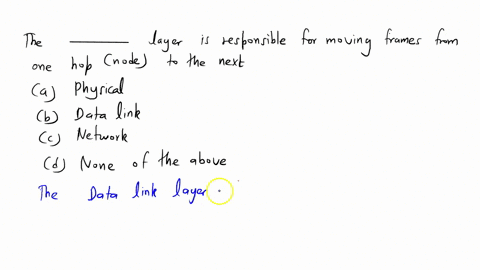 The ______ layer is responsible for moving frames from
one hop (node) to the next
(a) Physical
(b) Data link
(c) Network
(d) None of the above
The Data link layer .